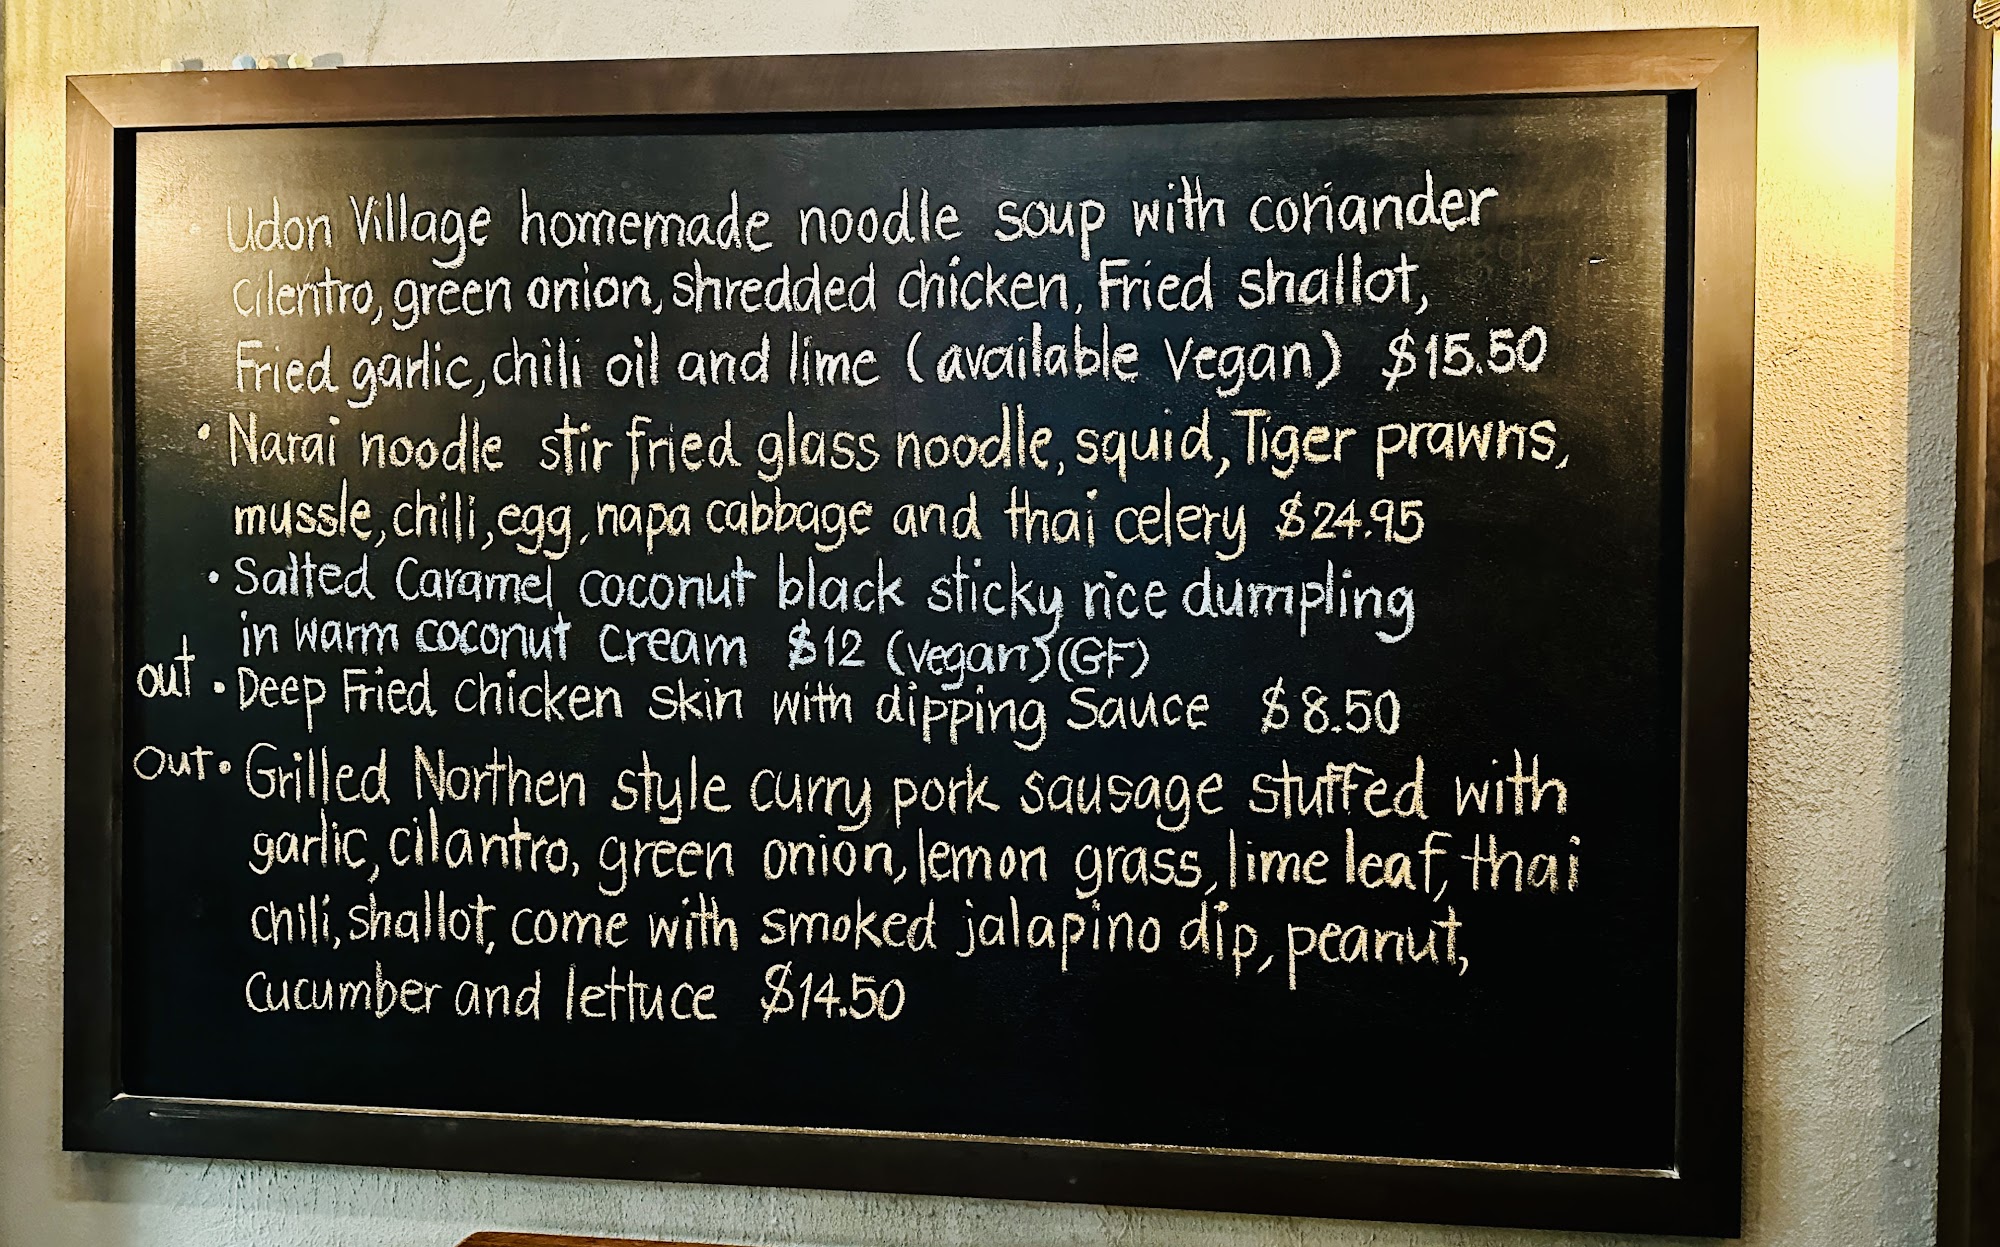 Udon Village homemade noodle soup with coriander
Cilentro, green onion, shredded chicken, Fried shallot,
Fried garlic, chili oil and lime (available Vegan) $15.50
• Narai noodle stir fried glass noodle, squid, Tiger prawns,
mussle, chili, egg, napa cabbage and thai celery $24.95
• Salted Caramel coconut black sticky rice dumpling
in warm coconut cream $12 (vegan) (GF)
out • Deep Fried chicken skin with dipping Sauce $8.50
out • Grilled Northen style curry pork sausage stuffed with
garlic, cilantro, green onion, lemon grass, lime leaf, thai
chili, shallot, come with smoked jalapino dip, peanut,
cucumber and lettuce $14.50